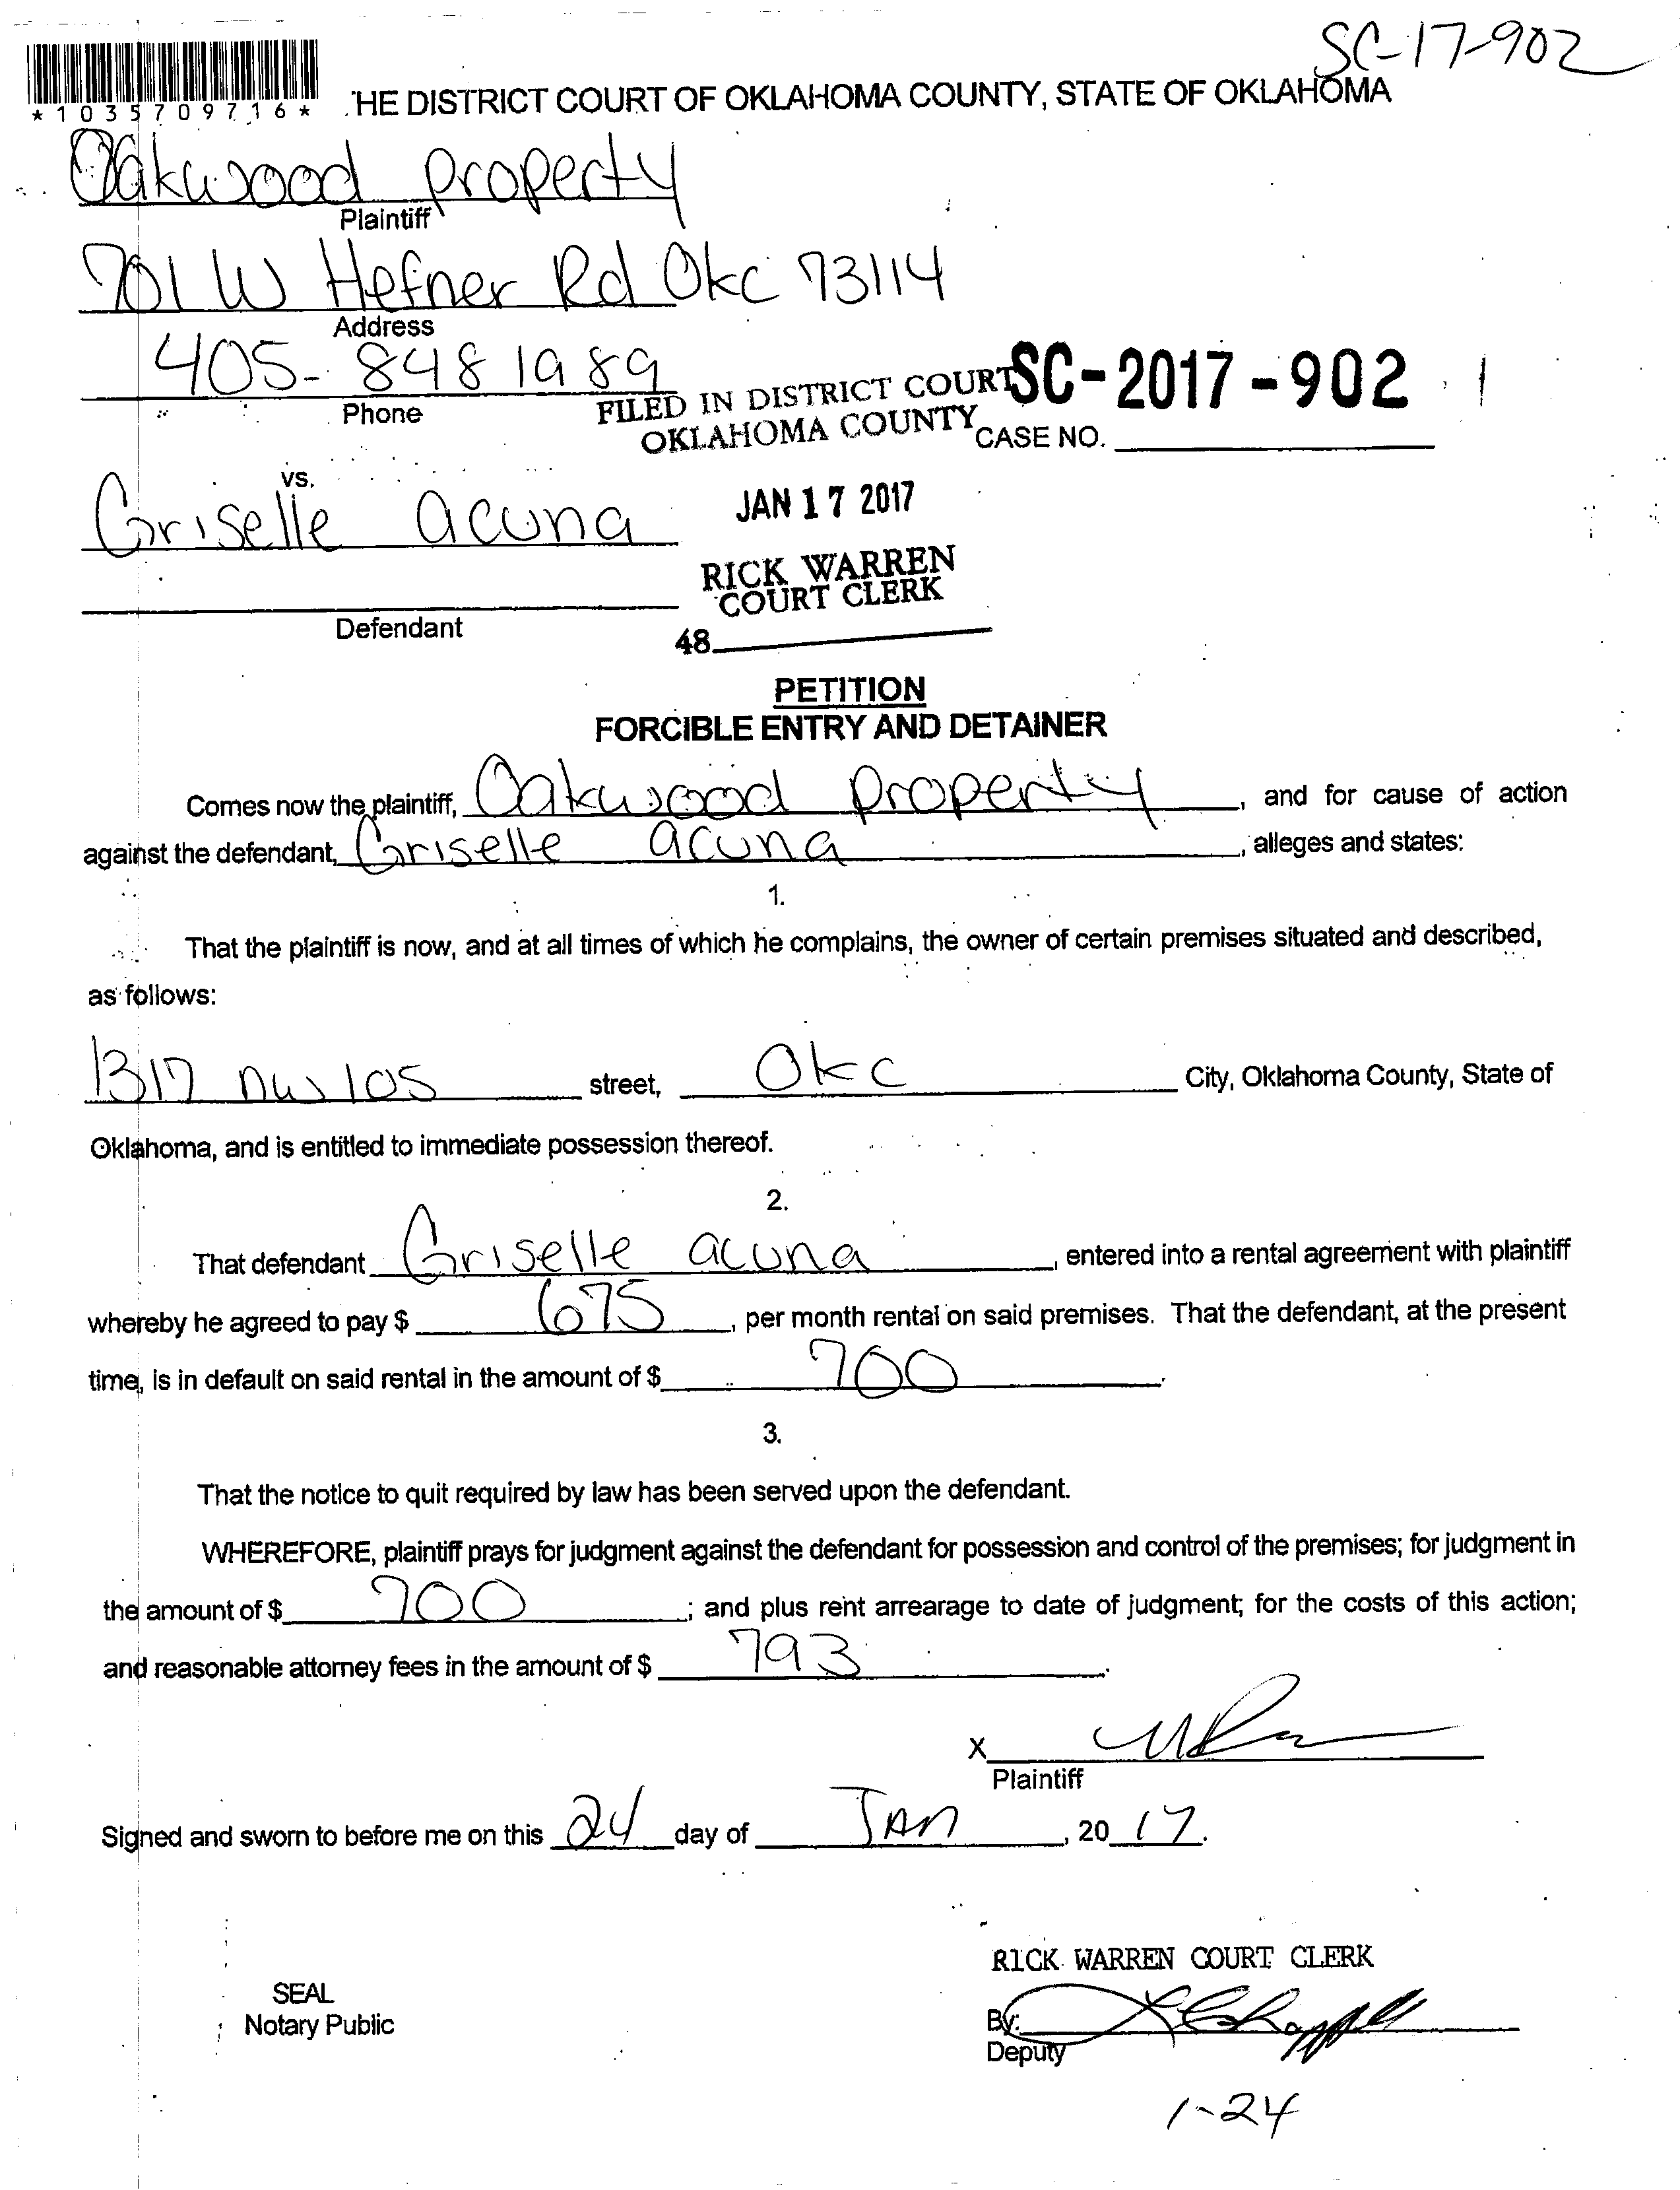 SC-17-902
*1035709716*
HE DISTRICT COURT OF OKLAHOMA COUNTY, STATE OF OKLAHOMA
Oakwood property
Plaintiff
701 W Hefner Rd Okc 73114
Address
405- 848 1989
Phone
FILED IN DISTRICT COURT
OKLAHOMA COUNTY
SC-2017-902
CASE NO.
vs.
Griselle acuna
JAN 17 2017
RICK WARREN
COURT CLERK
Defendant
48
PETITION
FORCIBLE ENTRY AND DETAINER
Comes now the plaintiff, Oakwood Property, and for cause of action
against the defendant, Griselle acuna, alleges and states:
1.
That the plaintiff is now, and at all times of which he complains, the owner of certain premises situated and described,
as follows:
1317 nw 105 street, Okc City, Oklahoma County, State of
Oklahoma, and is entitled to immediate possession thereof.
2.
That defendant Griselle acuna, entered into a rental agreement with plaintiff
whereby he agreed to pay $ 675, per month rental on said premises. That the defendant, at the present
time, is in default on said rental in the amount of $ 700.
3.
That the notice to quit required by law has been served upon the defendant.
WHEREFORE, plaintiff prays for judgment against the defendant for possession and control of the premises; for judgment in
the amount of $ 700; and plus rent arrearage to date of judgment; for the costs of this action;
and reasonable attorney fees in the amount of $ 793.
X
Plaintiff
Signed and sworn to before me on this 24 day of JAN, 20 17.
RICK WARREN COURT CLERK
SEAL
Notary Public
By:
Deputy
1-24